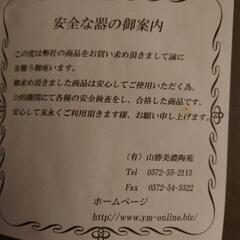 安全な器の御案内
この度は弊社の商品をお買い求め頂きまして誠に
有難う御座います。
御求め頂きました商品は安心してご使用いただく為、
公的機関にて各種の安全検査をし、合格した商品です。
安心して末永くご利用頂きます様、お願い申し上げます。
（有）山勝美濃陶苑
Tel 0572-55-2115
Fax 0572-54-5322
ホームページ
http://www.ym-online.biz/